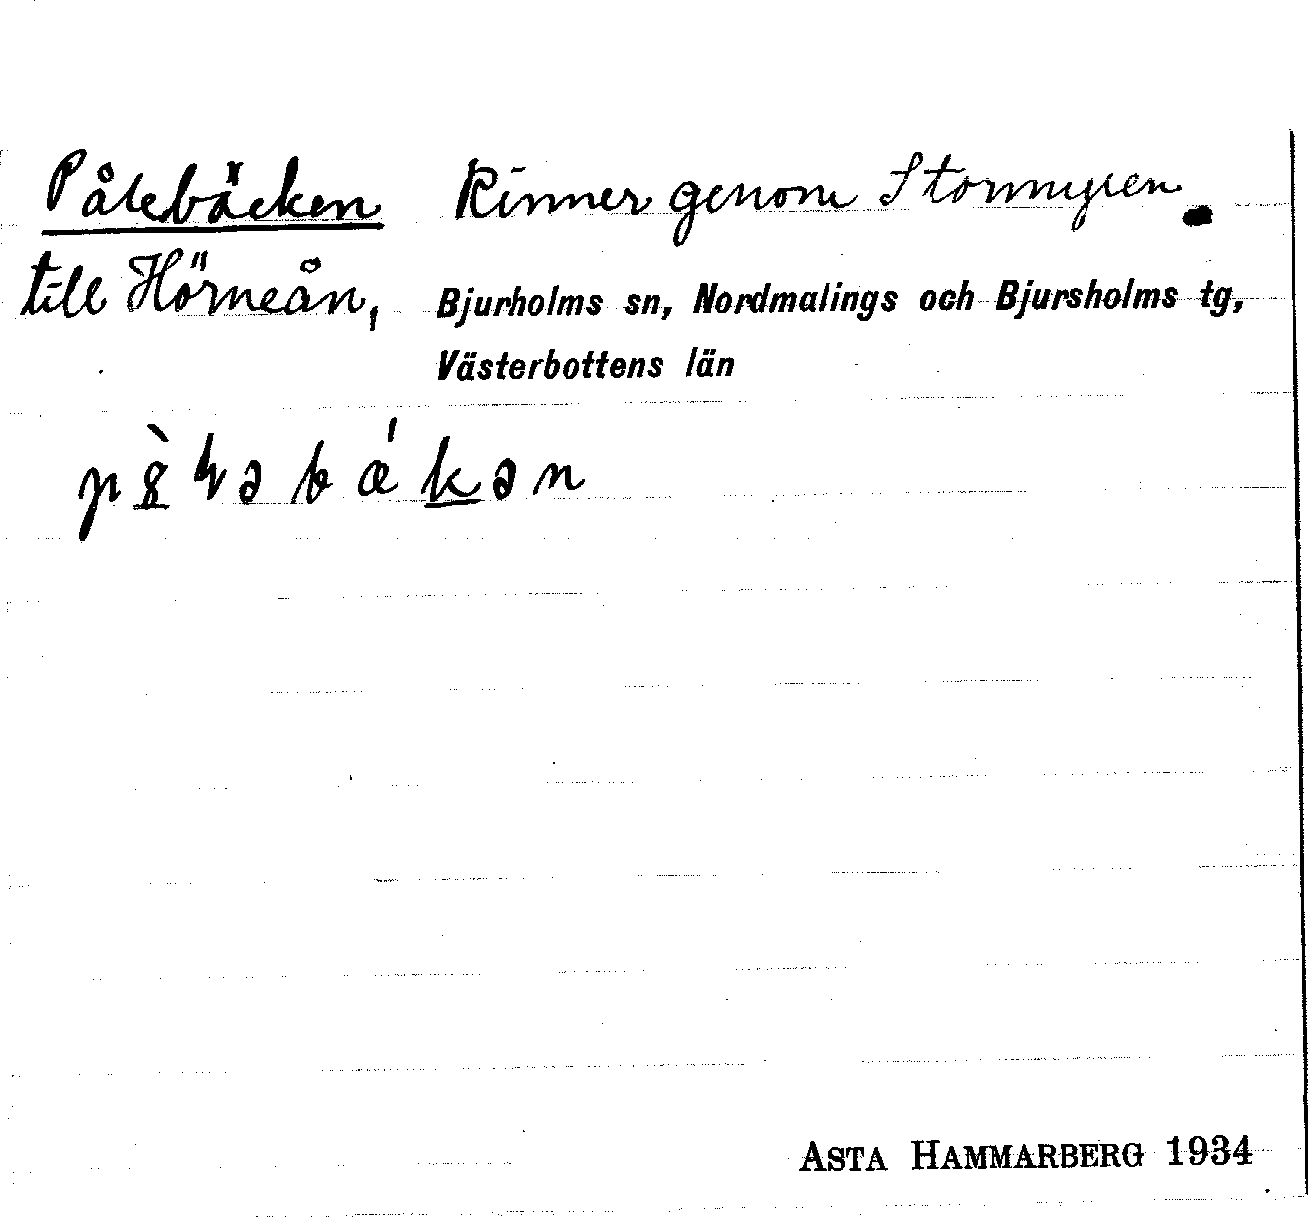 Pålebäcken Rinner genom Stormyren
till Hörneån, Bjurholms sn, Nordmalings och Bjursholms tg,
Västerbottens län
ASTA HAMMARBERG 1934